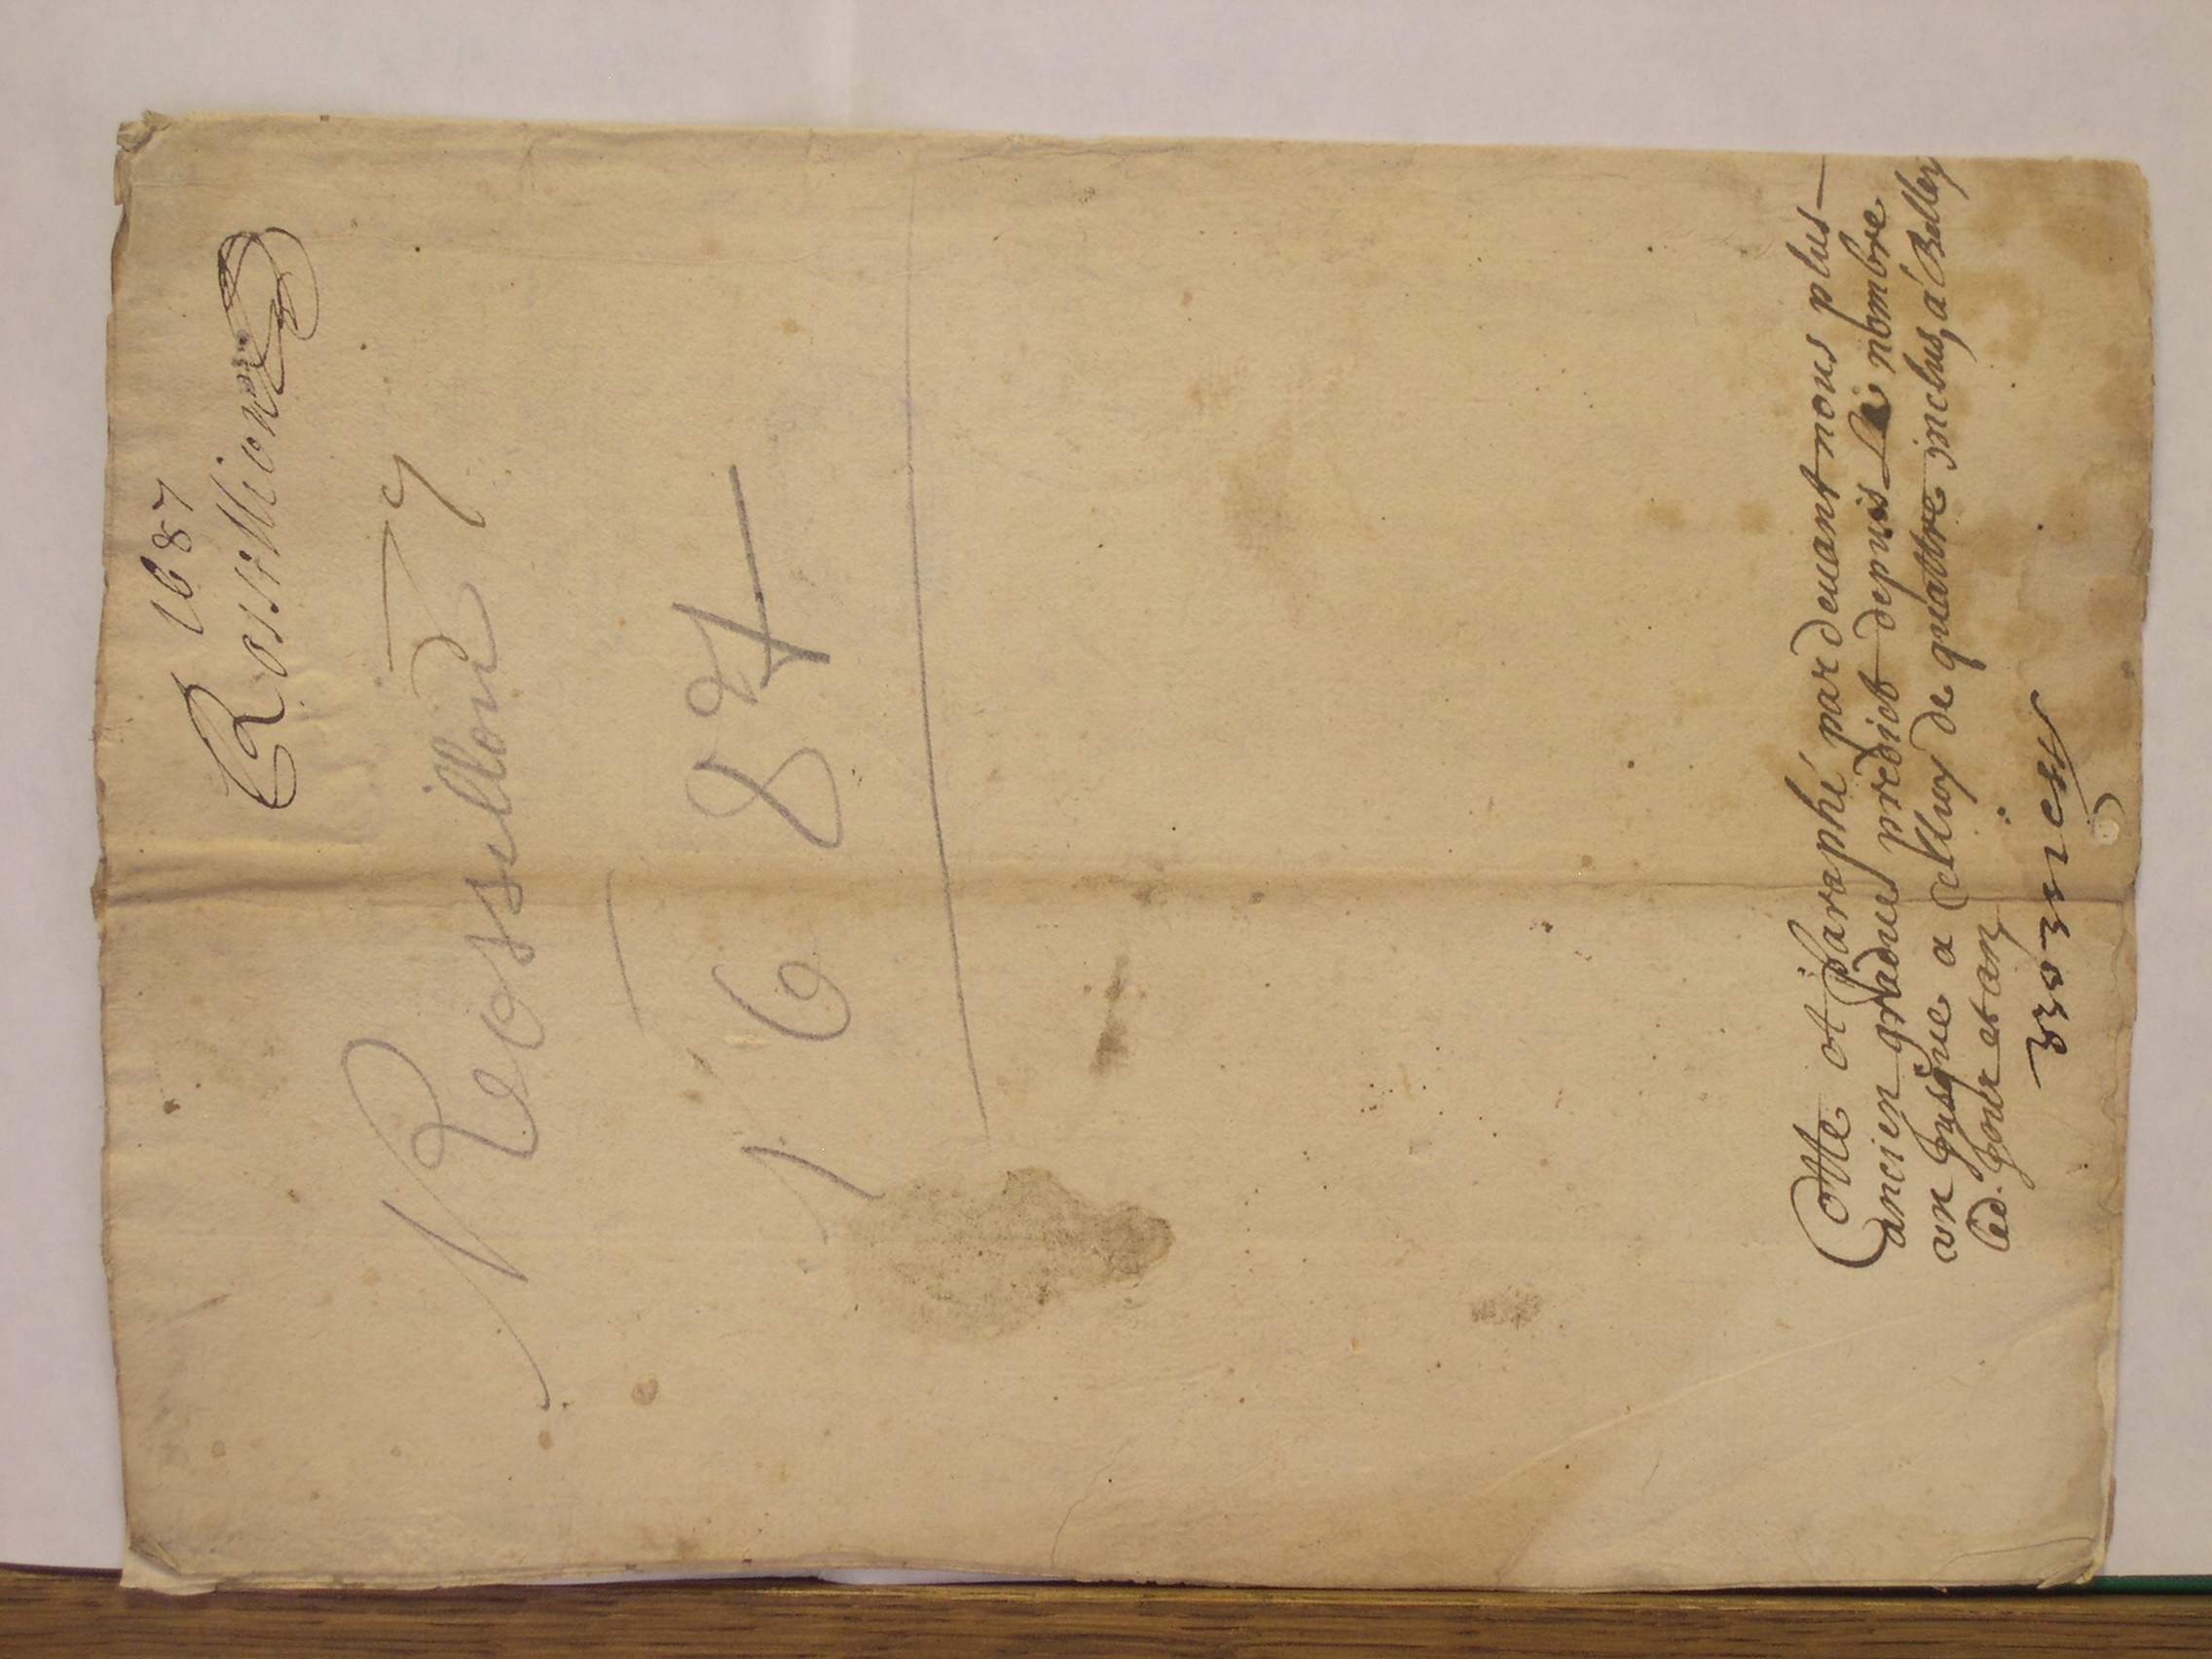 1687
Rossillion
Rossillion
1687
Cotte et paraphé pardeuant nous plus
ancien gradué prédict depuis le nombre
un jusque a celluy de quattre inclus, a Belley
led. jour et an